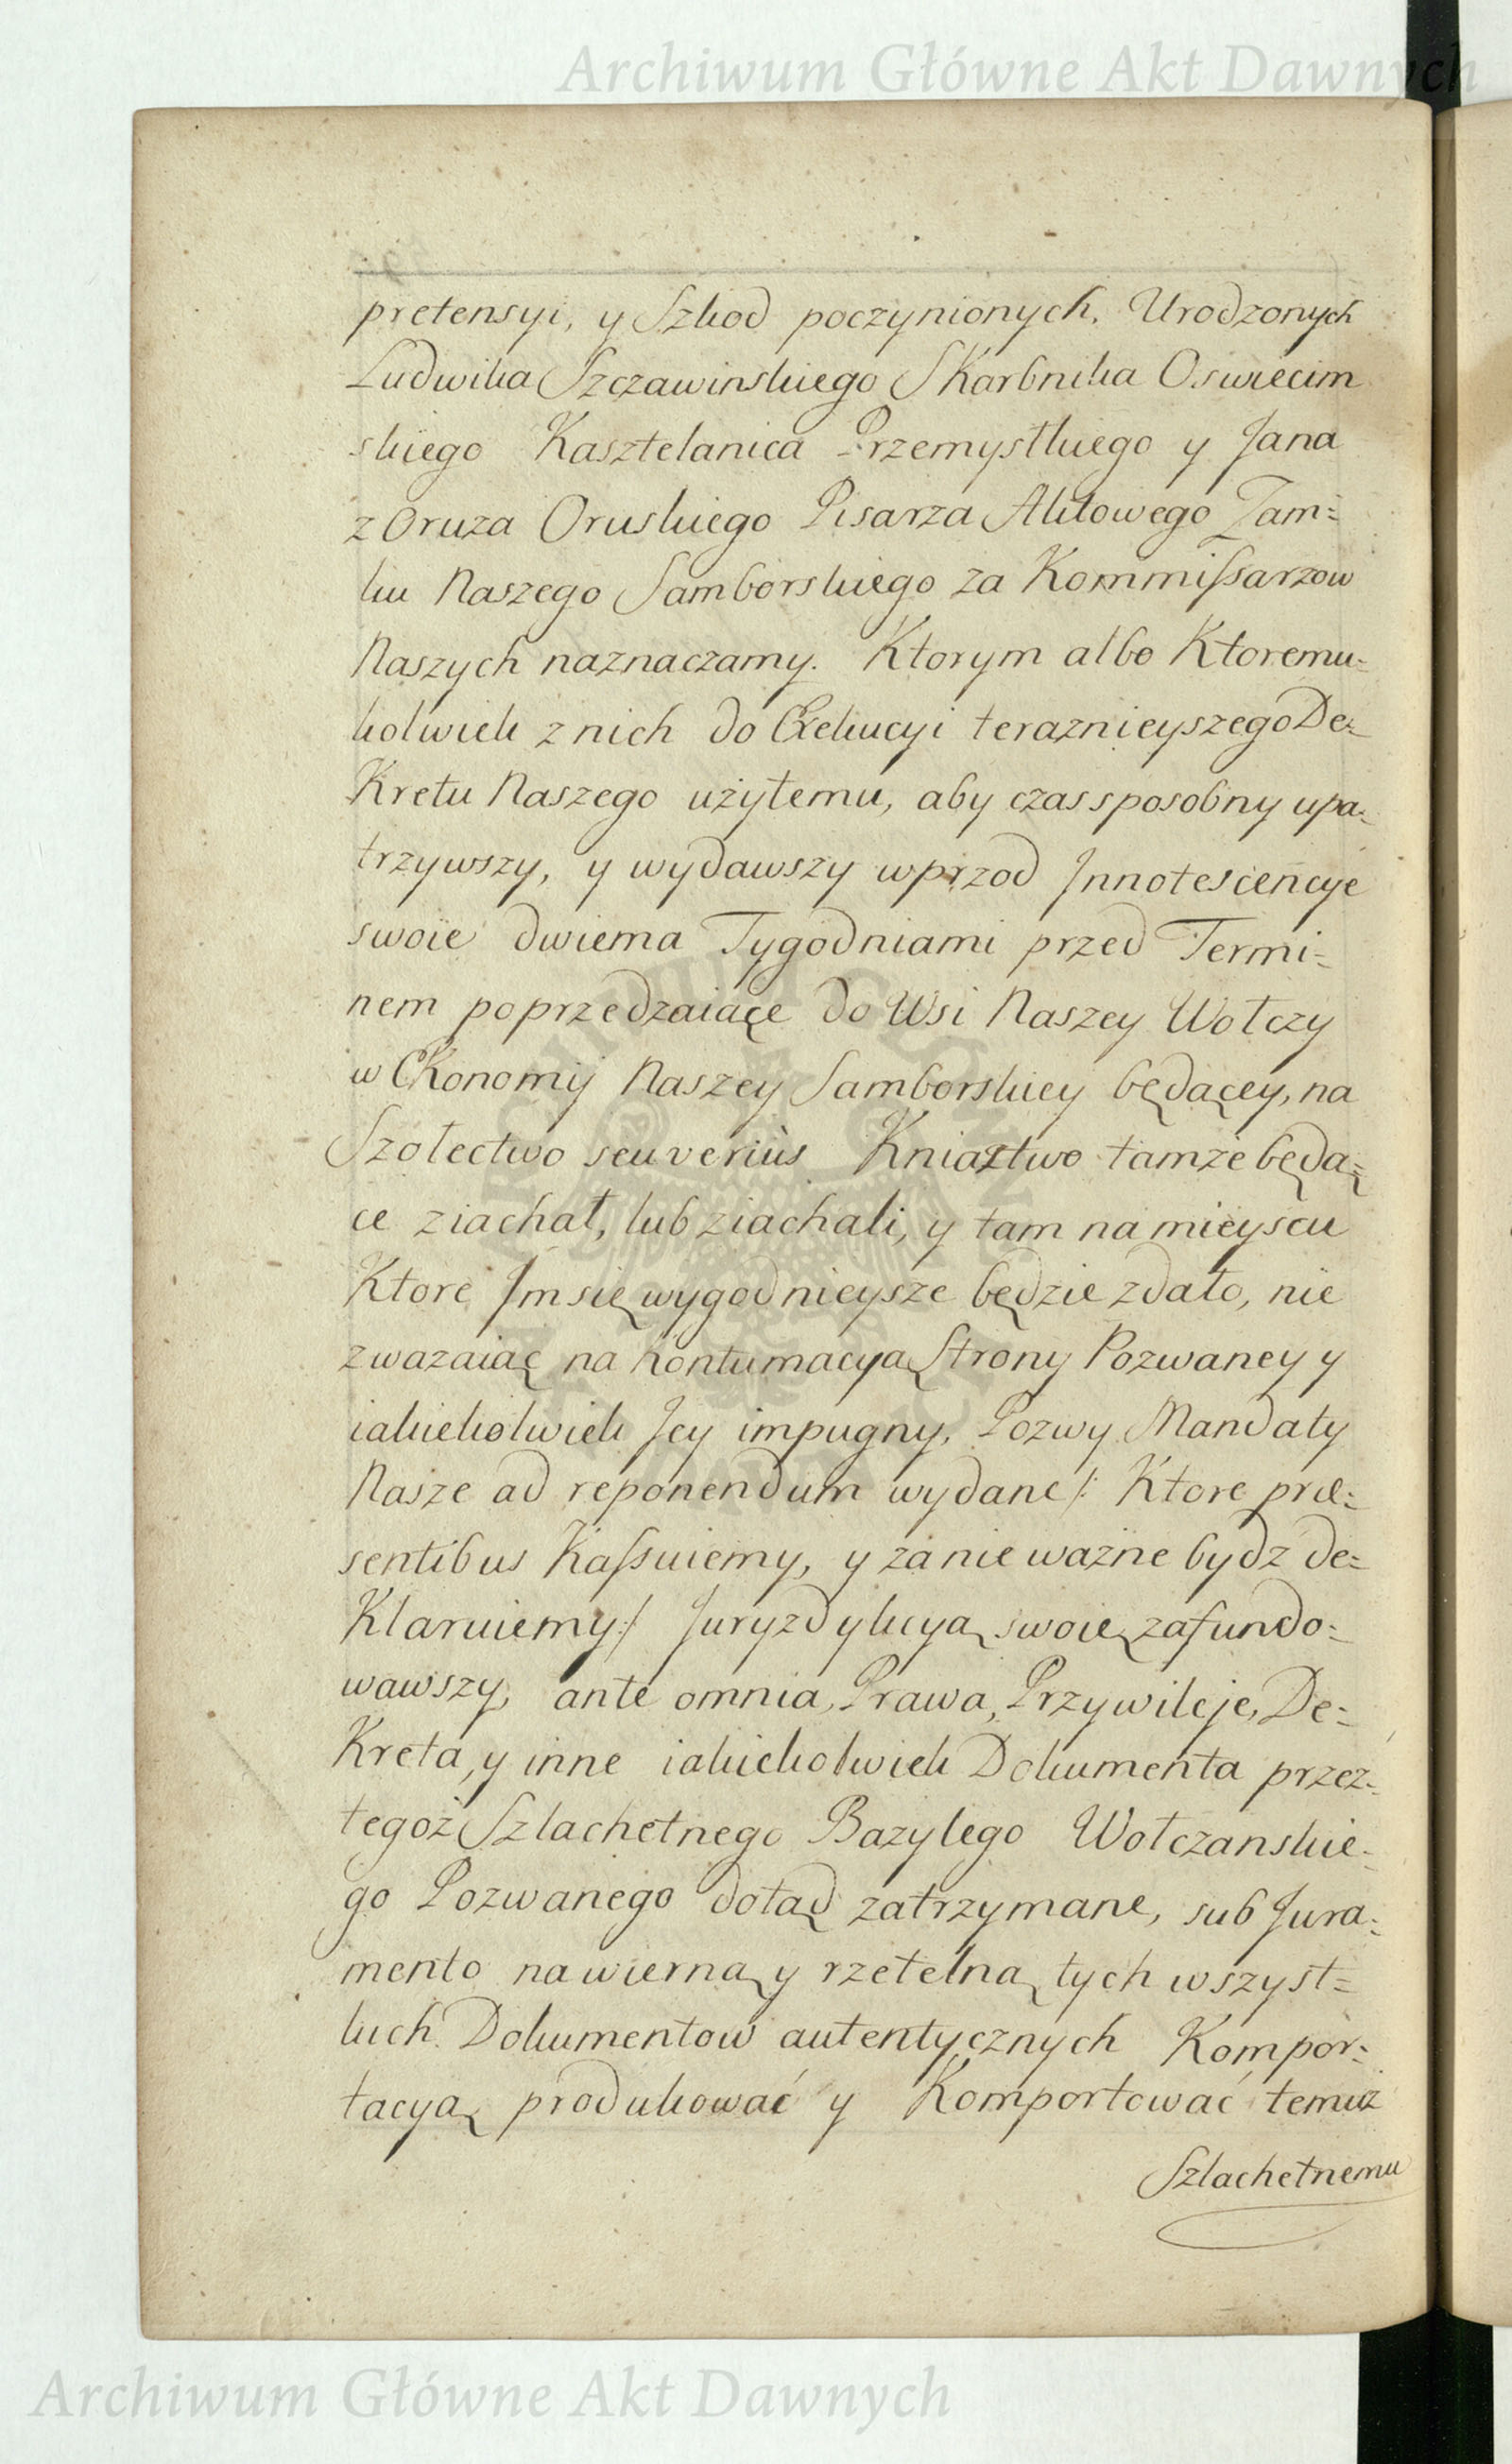 Archiwum Główne Akt Dawnych
pretensyi, y Szkod poczynionych. Urodzonych
Ludwika Szczawinskiego Skarbnika Oswiecim
skiego Kasztelanica Przemyslkiego y Jana
z Oruza Oruskiego Pisarza Aktowego Zam=
ku Naszego Samborskiego za Kommissarzow
Naszych naznaczamy. Ktorym albo Ktoremu=
kolwiek z nich do Exekucyi teraznieyszego De=
Kretu Naszego użytemu, aby czas sposobny upa=
trzywszy, y wydawszy wprzod Innotescencye
swoie dwiema Tygodniami przed Termi=
nem poprzedzaiące do Wsi Naszey Wołczy
w Ekonomij Naszey Samborskiey będącey, na
Szołectwo seu verius Kniaztwo tamże będą=
ce ziachał, lub ziachali, y tam na mieyscu
Ktore Im się wygodnieysze będzie zdało, nie
zwazaiąc na kontumacyą Strony Pozwaney y
iakiekolwiek Jey impugny, Pozwy Mandaty
Nasze ad reponendum wydane /: Ktore præ=
sentibus Kassuiemy, y za nie ważne bydz de=
Klaruiemy :/ Juryzdykcyą swoię zafundo=
wawszy, ante omnia, Prawa, Przywileje, De=
Kreta, y inne iakiekolwiek Dokumenta przez=
tegoż Szlachetnego Bazylego Wołczanskie=
go Pozwanego dotąd zatrzymane, sub Jura=
mento na wierną y rzetelną tych wszyst=
kich Dokumentow autentycznych Kompor=
tacyą produkować y Komportować temuż
Szlachetnemu
Archiwum Główne Akt Dawnych